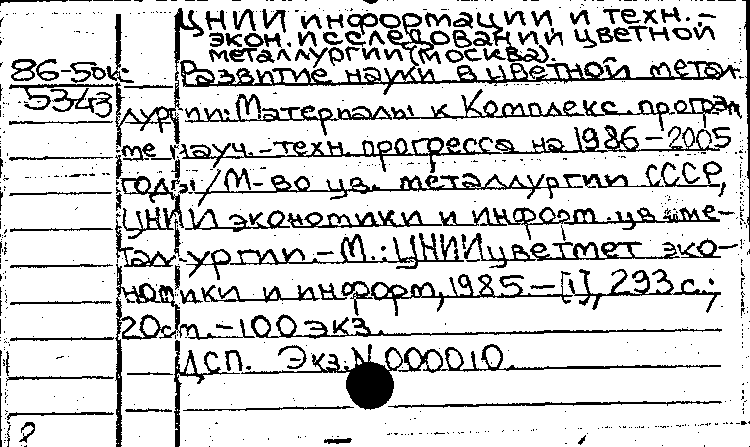 ЦНИИ информации и техн.-
экон. исследований цветной
металлургии (Москва).
86-5ок: Развитие науки в цветной метал-
5343 лургии: Материалы к Комплекс. програм
ме науч.-техн. прогресса на 1986-2005
годы / М-во цв. металлургии СССР,
ЦНИИ экономики и информ. цв. ме-
таллургии. - М.: ЦНИИцветмет эко-
номики и информ, 1985. - [1], 293 с.;
20см. - 100 экз.
ДСП. Экз. N 000010.
8